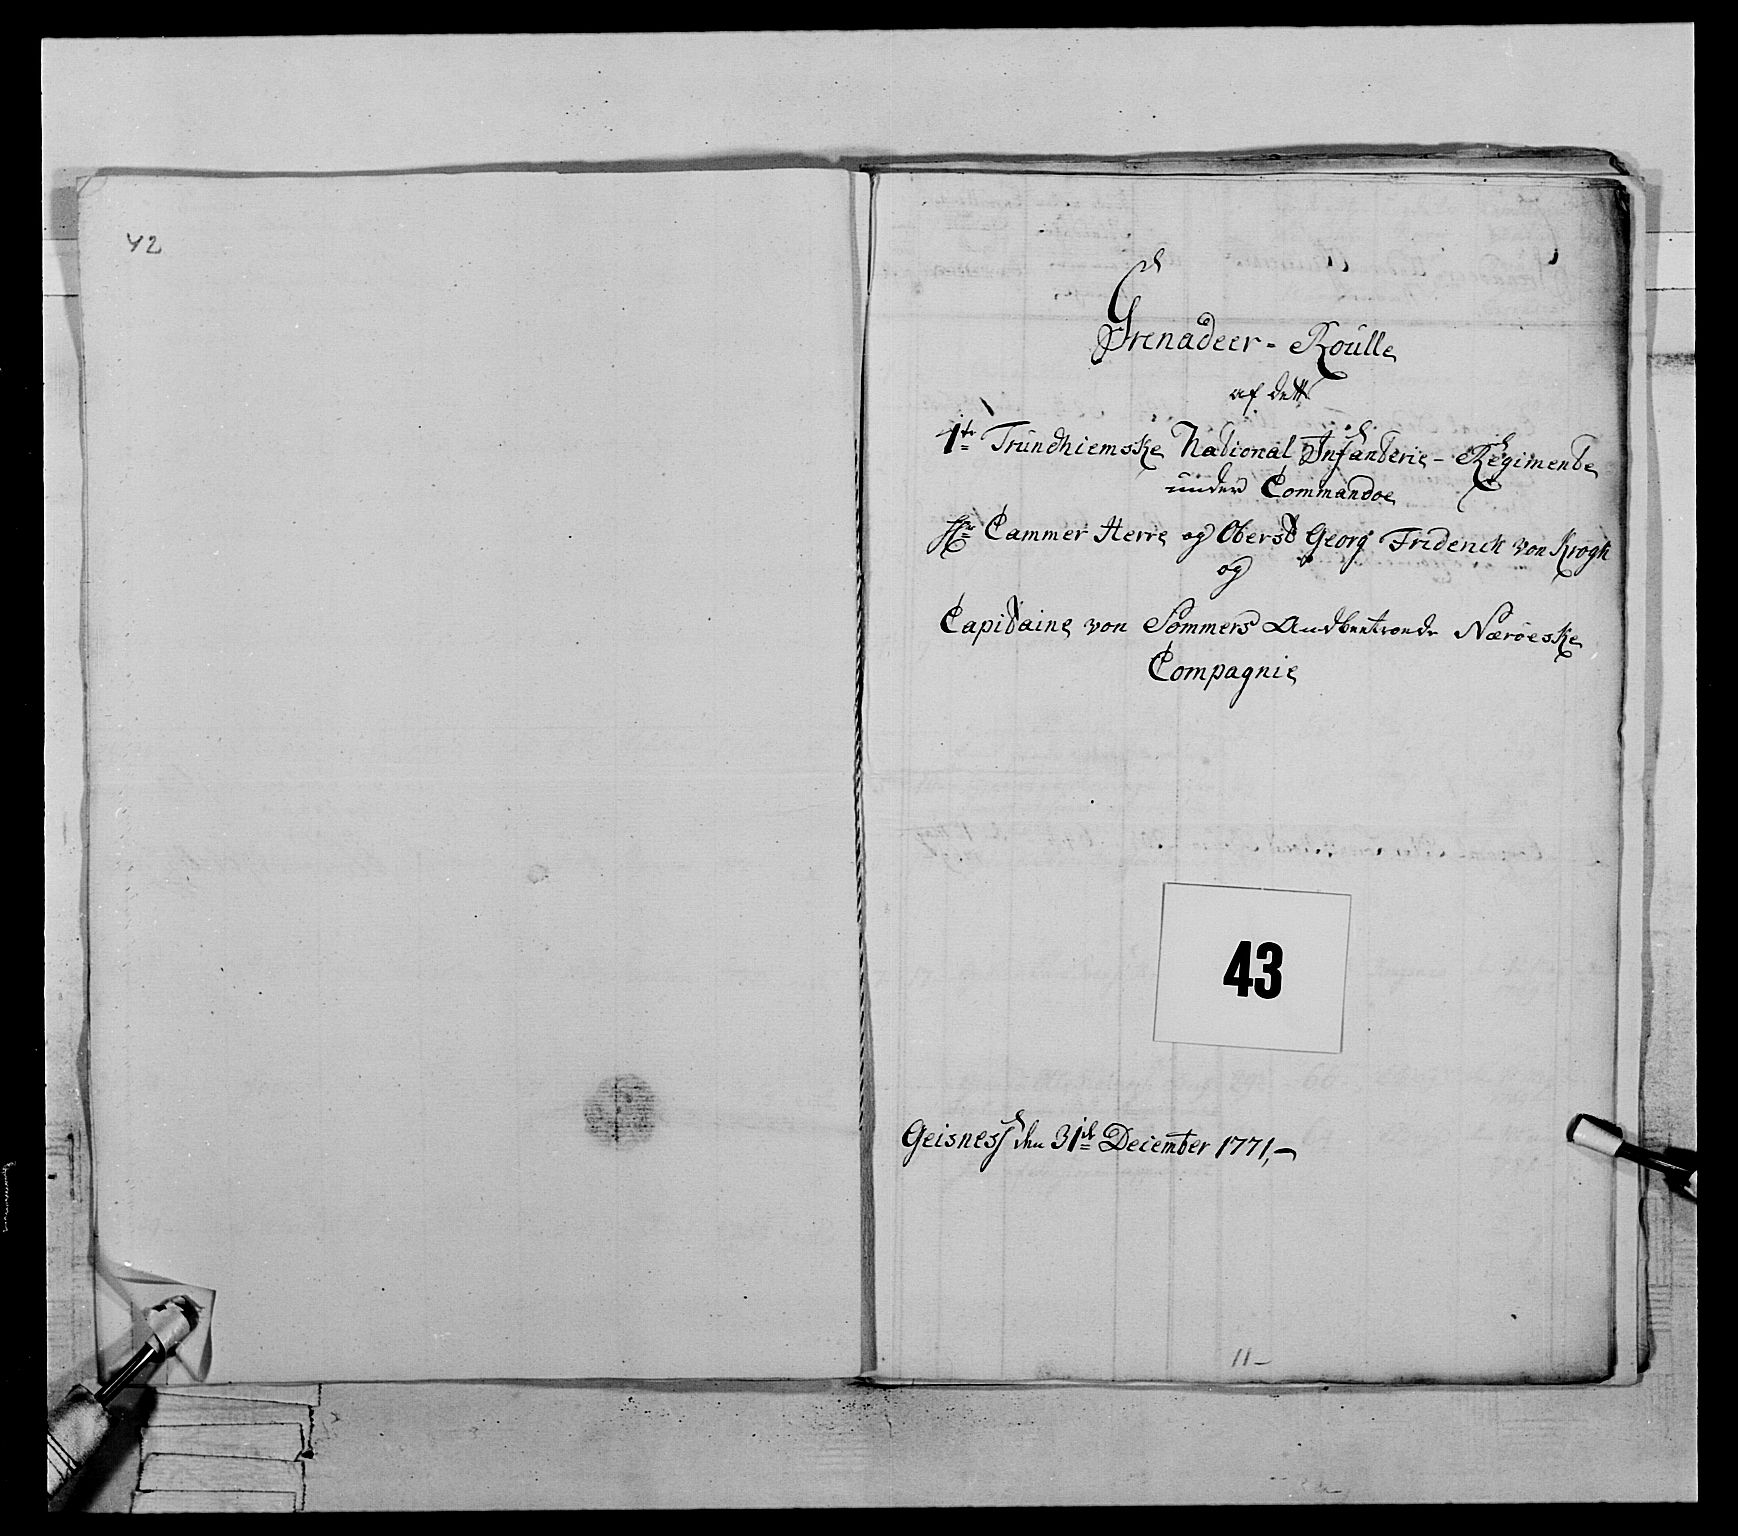 42
Grenadeer - Roulle
af dett
1te Trundhiemske National Infanterie - Regimente
under Commandoe
Hr Cammer Herre og Oberst Georg Friderick von Krogh
og
Capitaine von Sommers Nærøeske
Compagnie
43
Geisness den 31te December 1771,-
11-